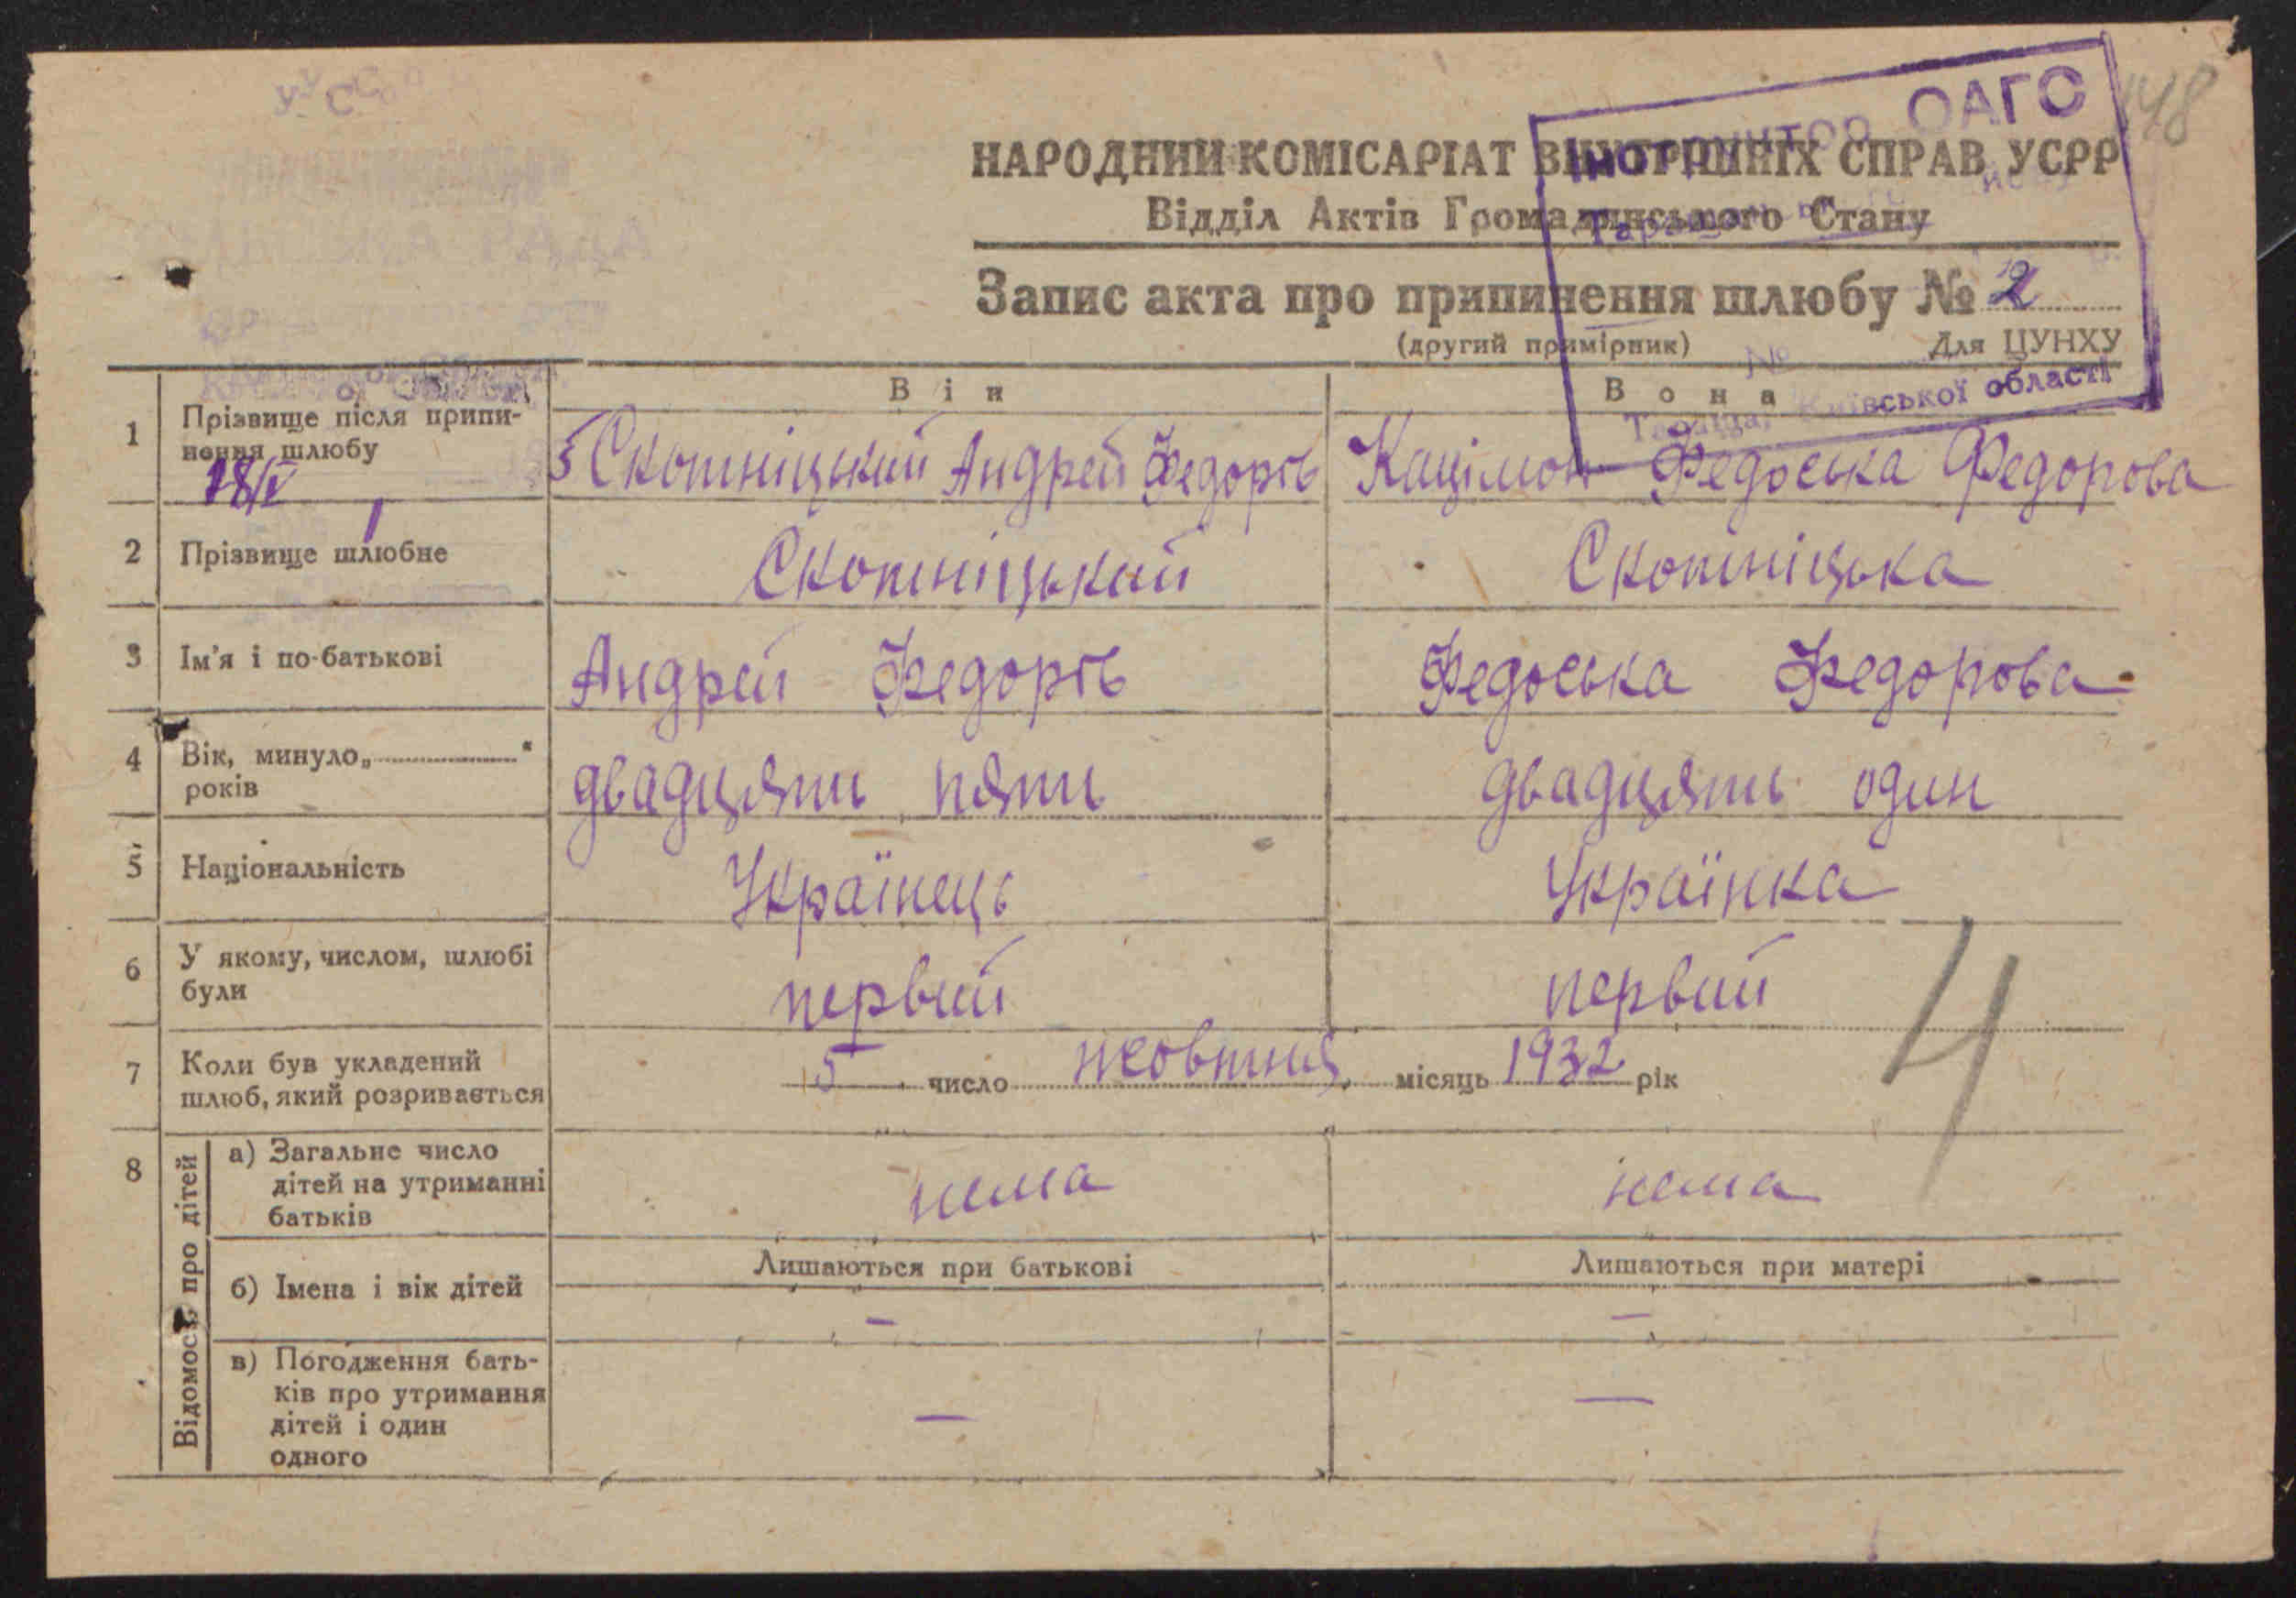 148
ОАГС
НАРОДНИЙ КОМІСАРІАТ ВНУТРІШНІХ СПРАВ УСРР
Відділ Актів Громадянського Стану
СІЛЬСЬКА РАДА
Запис акта про припинення шлюбу № 2
(другий примірник) Для ЦУНХУ
№
Він Вона
Тараща, Київської області
1 Прізвище після припинення шлюбу
18/IV
Скотніцький Андрей Федорів Кацімон Федоська Федорова
2 Прізвище шлюбне Скотніцький Скотніцька
3 Ім'я і по-батькові Андрей Федорів Федоська Федорова
4 Вік, минуло „ “ років двадцять пять двадцять один
5 Національність Українець Українка
6 У якому, числом, шлюбі були первий первий
7 Коли був укладений шлюб, який розривається 5 число жовтня місяць 1932 рік
4
8 Відомості про дітей
а) Загальне число дітей на утриманні батьків нема нема
Лишаються при батькові Лишаються при матері
б) Імена і вік дітей — —
в) Погодження батьків про утримання дітей і один одного — —